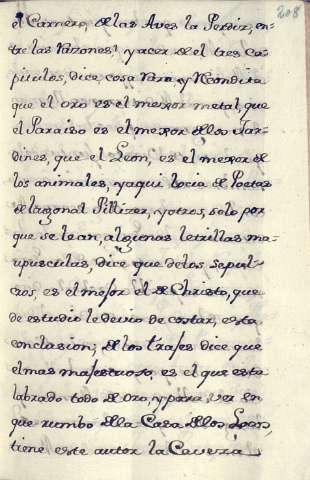 208
el Carnero, de las Aves la Perdiz, en-
tre las Varones y acer de el tres ca-
pitulos, dice, cosa rara y Recondita
que el oro es el mexor metal, que
el Paraiso es el mexor de los Jar-
dines, que el Leon, es el mexor de
los animales, y aqui Poetas
de lagonal Pillizer, y otros, solo por
que se lean, algunas letrillas ma-
iusculas, dice que de los sepul-
cros, es el mejor el de Christo, que
de estudio le devio de costar, esta
conclusion; de los trajes dice que
el mas majestuoso, es el que esta
labrado todo de oro, y para ver en
que rumbo de la Casa de los Locos,
tiene este autor la Caveza